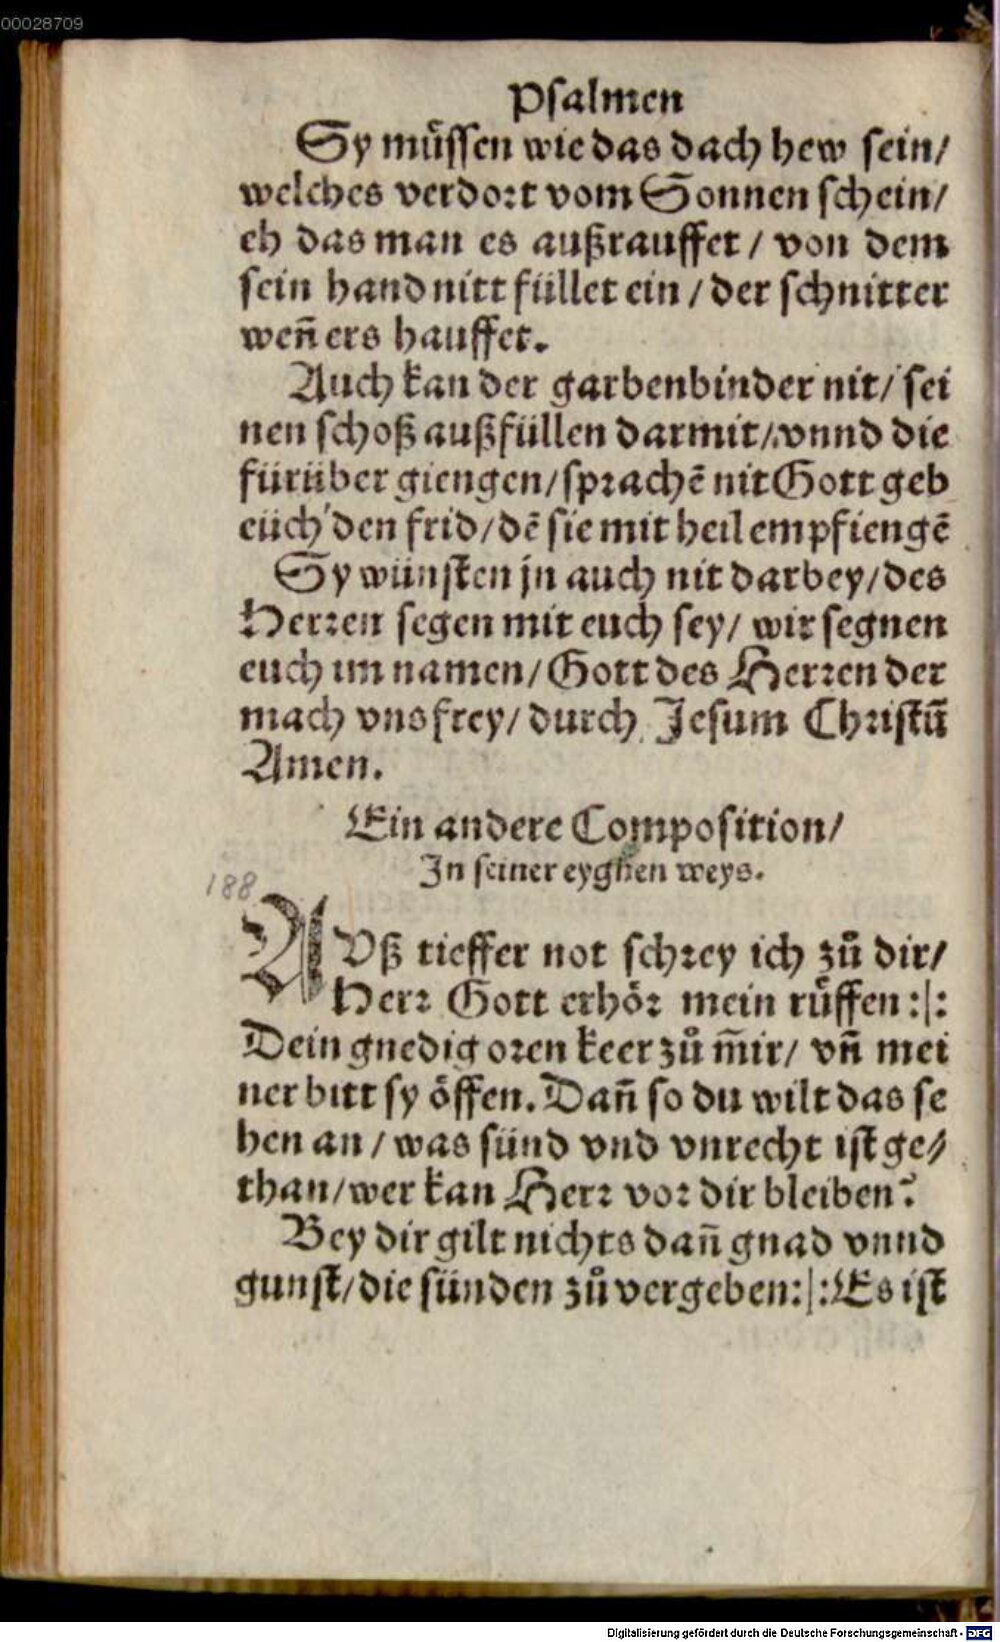 00028709
Psalmen
Sy müssen wie das dach hew sein/
welches verdort vom Sonnen schein/
eh das man es außrauffet / von dem
sein hand nitt füllet ein / der schnitter
weñ ers hauffet.
Auch kan der garbenbinder nit/ sei
nen schoß außfüllen darmit/ vnnd die
fürüber giengen/ sprachẽ nit Gott geb
eüch den frid/ dẽ sie mit heil empfiengẽ
Sy wünsten jn auch nit darbey/ des
Herren segen mit euch sey/ wir segnen
euch im namen/ Gott des Herren der
mach vns frey/ durch Jesum Christũ
Amen.
Ein andere Composition/
In seiner eyghen weys.
188
AVß tieffer not schrey ich zů dir/
Herr Gott erhör mein růffen :|:
Dein gnedig oren keer zů m̃ir/ vñ mei
ner bitt sy öffen. Dañ so du wilt das se
hen an / was sünd vnd vnrecht ist ge/
than/ wer kan Herr vor dir bleiben?
Bey dir gilt nichts dañ gnad vnnd
gunst/ die sünden zů vergeben :|: Es ist
Digitalisierung gefördert durch die Deutsche Forschungsgemeinschaft - DFG